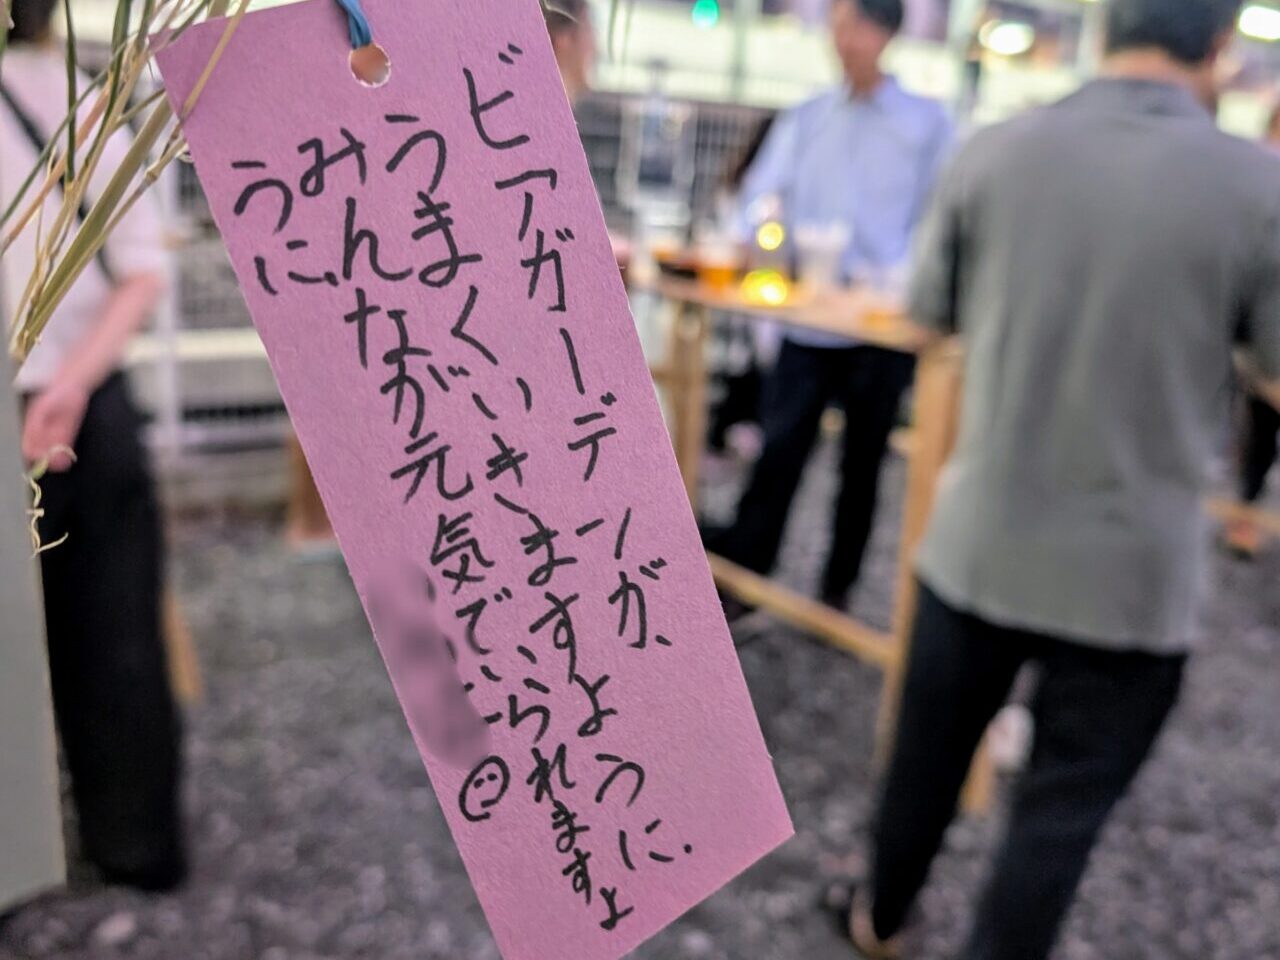 ビアガーデンが、
うまくいきますように.
みんなが元気でいられますよ
うに.